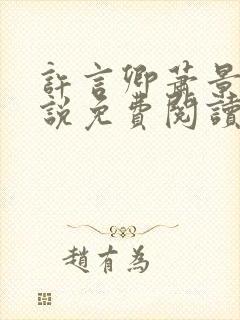 許言卿蕭景
說免費閱讀
趙有為